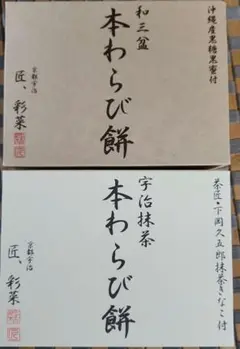 沖縄産黒糖黒蜜付
和三盆
本わらび餅
京都宇治
匠、彩菜
茶匠・下岡久五郎抹茶きなこ付
宇治抹茶
本わらび餅
京都宇治
匠、彩菜